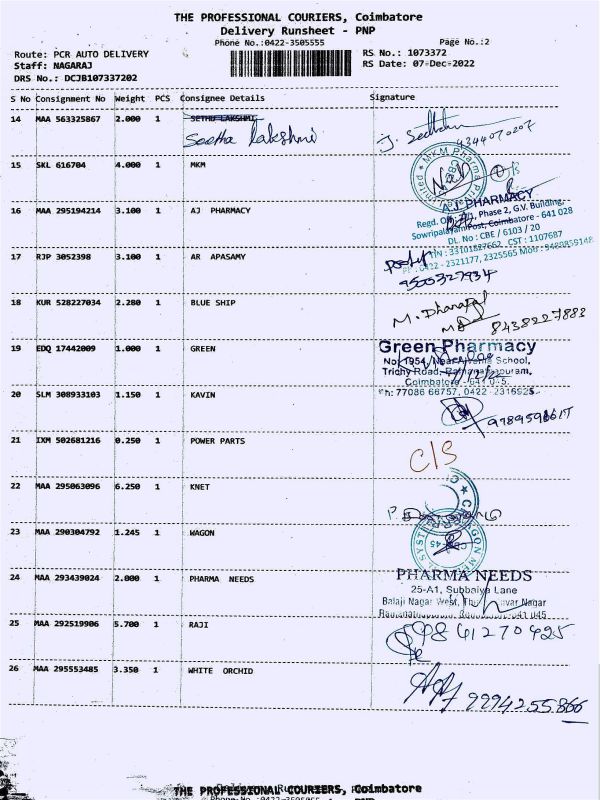 THE PROFESSIONAL COURIERS, Coimbatore
Delivery Runsheet - PNP
Phone No.:0422-3505555 Page No.:2
Route: PCR AUTO DELIVERY RS No.: 1073372
Staff: NAGARAJ RS Date: 07-Dec-2022
DRS No.: DCJB107337202
S No Consignment No Weight PCS Consignee Details Signature
14 MAA 563325867 2.000 1 SETHU LAKSHMI
Seetha lakshmi 4344070207
15 SKL 616704 4.000 1 MKM
MKM Pharma
16 MAA 295194214 3.100 1 AJ PHARMACY
A.J PHARMACY
Phase 2, G.V. Building,
Sowripalayam Post, Coimbatore - 641 028
DL. No : CBE / 6103 / 20
CST : 1107687
17 RJP 3052398 3.100 1 AR APASAMY
0422 - 2321177, 2325565 Mob :
9500327934
18 KUR 528227034 2.280 1 BLUE SHIP
8438227883
19 EDQ 17442009 1.000 1 GREEN
Green Pharmacy
School,
Trichy Road, Ramanathapuram,
Coimbatore - 641 045.
Ph: 77086 66757, 0422 - 2316925
20 SLM 308933103 1.150 1 KAVIN
21 IXM 502681216 0.250 1 POWER PARTS
C/S
22 MAA 295063096 6.250 1 KNET
23 MAA 290304792 1.245 1 WAGON
24 MAA 293439024 2.000 1 PHARMA NEEDS
PHARMA NEEDS
25-A1, Subbaiya Lane
Balaji Nagar West, Nagar
25 MAA 292519906 5.700 1 RAJI
9841270425
26 MAA 295553485 3.350 1 WHITE ORCHID
9994255866
THE PROFESSIONAL COURIERS, Coimbatore